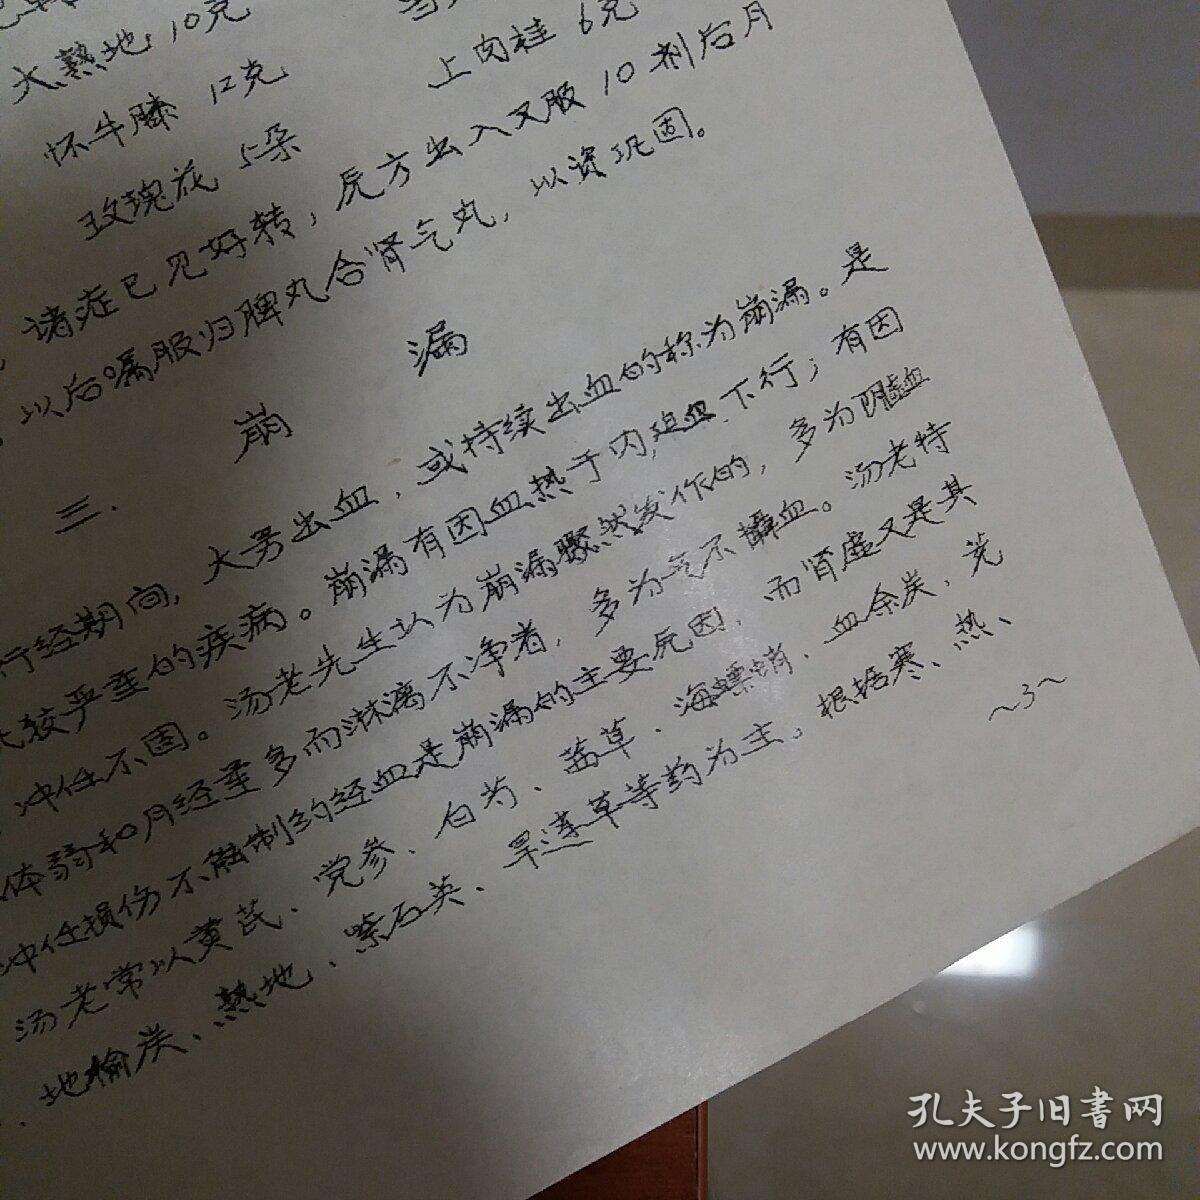 大熟地 10克
上肉桂 6克
怀牛膝 12克
玫瑰花 5朵
诸症已见好转，原方出入又服10剂后月
以后嘱服归脾丸合肾气丸，以资巩固。
三. 崩 漏
行经期间，大量出血，或持续出血的称为崩漏。是
较严重的疾病。崩漏有因血热于内，迫血下行；有因
冲任不固。汤老先生认为崩漏骤然发作的，多为阴虚血
体弱和月经量多而淋漓不净者，多为气不摄血。汤老特
冲任损伤不能制约经血是崩漏的主要原因，而肾虚又是其
汤老常以黄芪、党参、白芍、茜草、海螵蛸、血余炭、芜
地榆炭、熟地、紫石英、旱莲草等药为主。根据寒、热、
~3~
孔夫子旧书网
www.kongfz.com